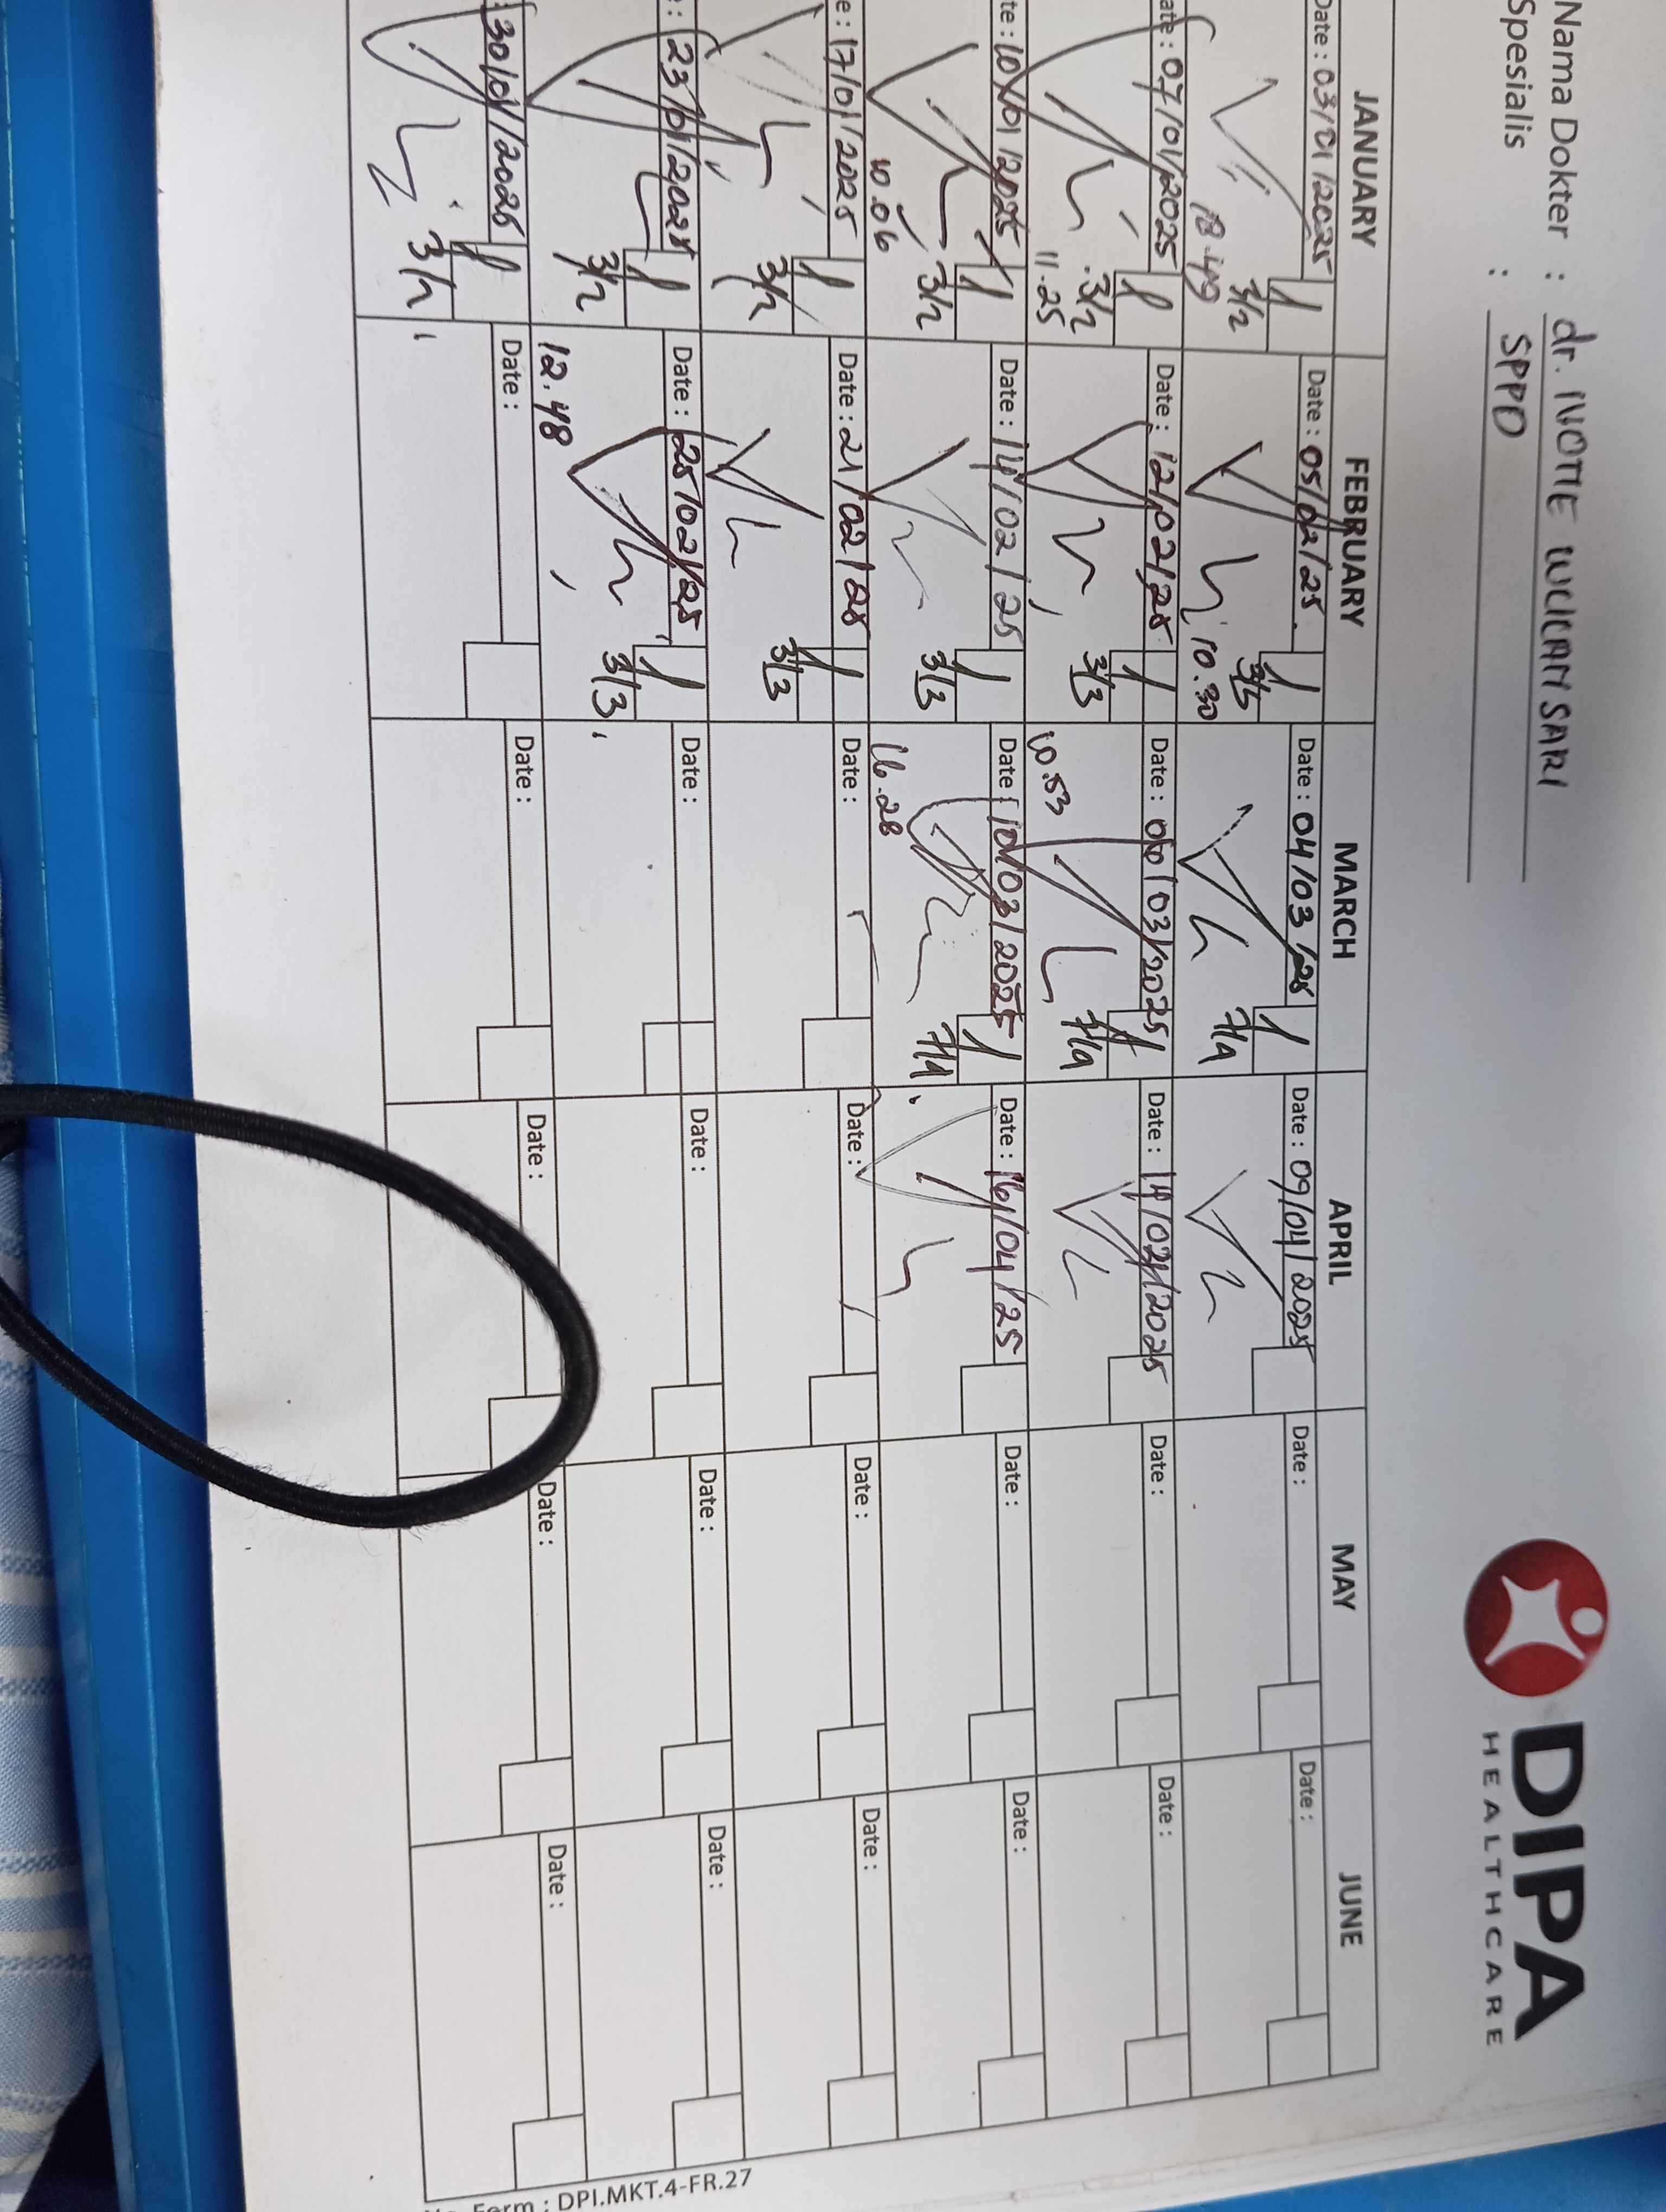 Nama Dokter : dr. NOTTIE WULAN SARI
Spesialis : SPPD
DIPA
HEALTHCARE
JANUARY FEBRUARY MARCH APRIL MAY JUNE
Date : 03/01/2025 Date : 05/02/25 Date : 04/03/25 Date : 09/04/2025 Date : Date :
3/2 18.49 3/3 10.30 7/4
ate : 07/01/2025 Date : 12/02/25 Date : 06/03/2025 Date : 14/04/2025 Date : Date :
3/2 11.25 3/3 10.53 7/4
te : 10/01/2025 Date : 14/02/25 Date : 10/03/2025 Date : 16/04/25 Date : Date :
10.06 3/2 3/3 16.28 7/4
e : 17/01/2025 Date : 21/02/25 Date : Date : Date : Date :
3/2 3/3
: 23/01/2025 Date : 25/02/25 Date : Date : Date : Date :
3/2 12.48 3/3
: 30/01/2025 Date : Date : Date : Date : Date :
3/2
Form : DPI.MKT.4-FR.27